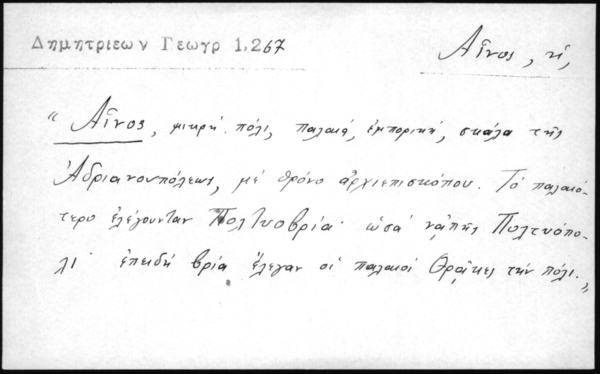 Δημητριεων Γεωγρ 1,267
Αἶνος, ἡ,
"Αἶνος, μικρή πόλι, παλαιά, ἐμπορική, σκάλα τῆς
Ἀδριανουπόλεως, μέ θρόνο ἀρχιεπισκόπου. Τό παλαιό-
τερο ἐλέγουνταν Πολτυοβρία· ὡσά νἄπῃς Πολτυόπο-
λι· ἐπειδή βρία ἔλεγαν οἱ παλαιοί Θρᾷκες τήν πόλι."